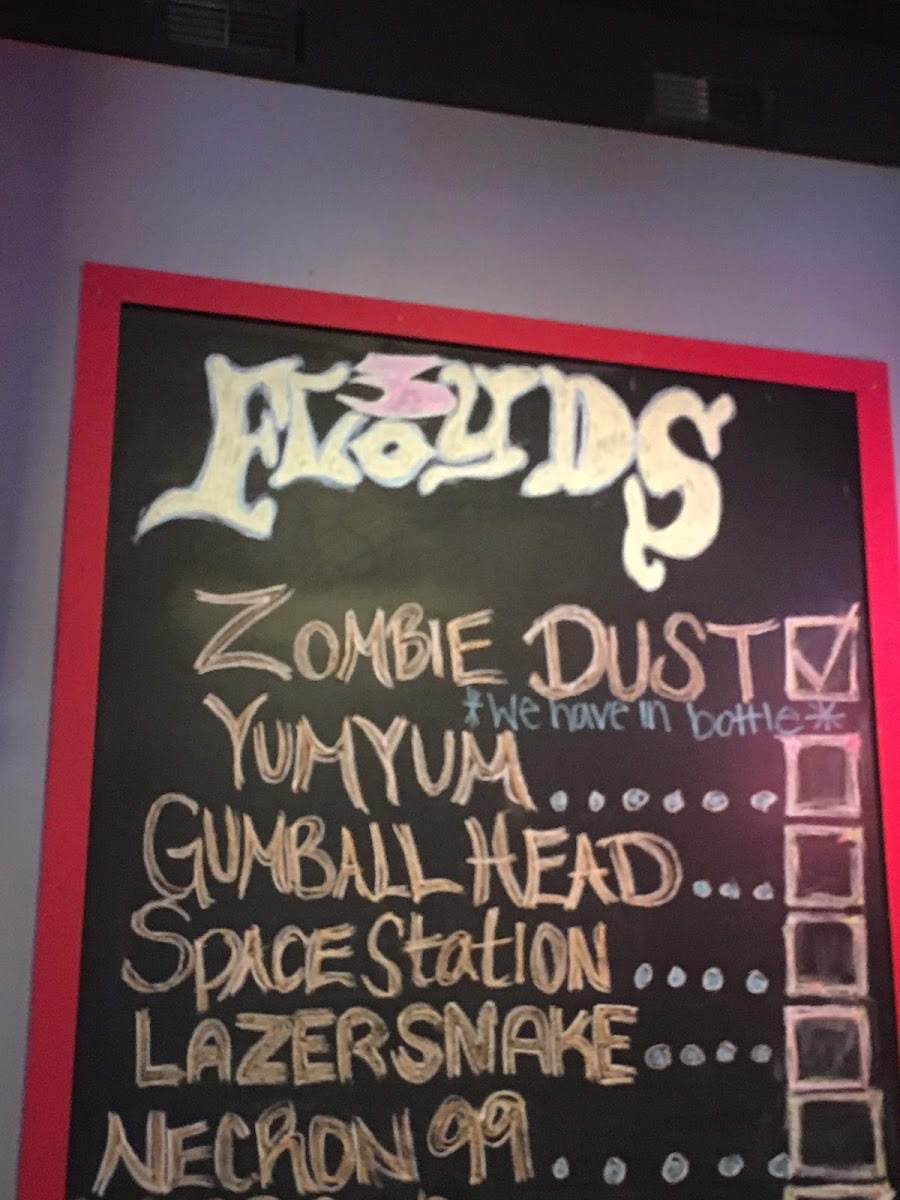 3
FLOYDS
ZOMBIE DUST
*We have in bottle*
YUMYUM......
GUMBALL HEAD...
SPACE StatION....
LAZERSNAKE....
NECRON 99.....